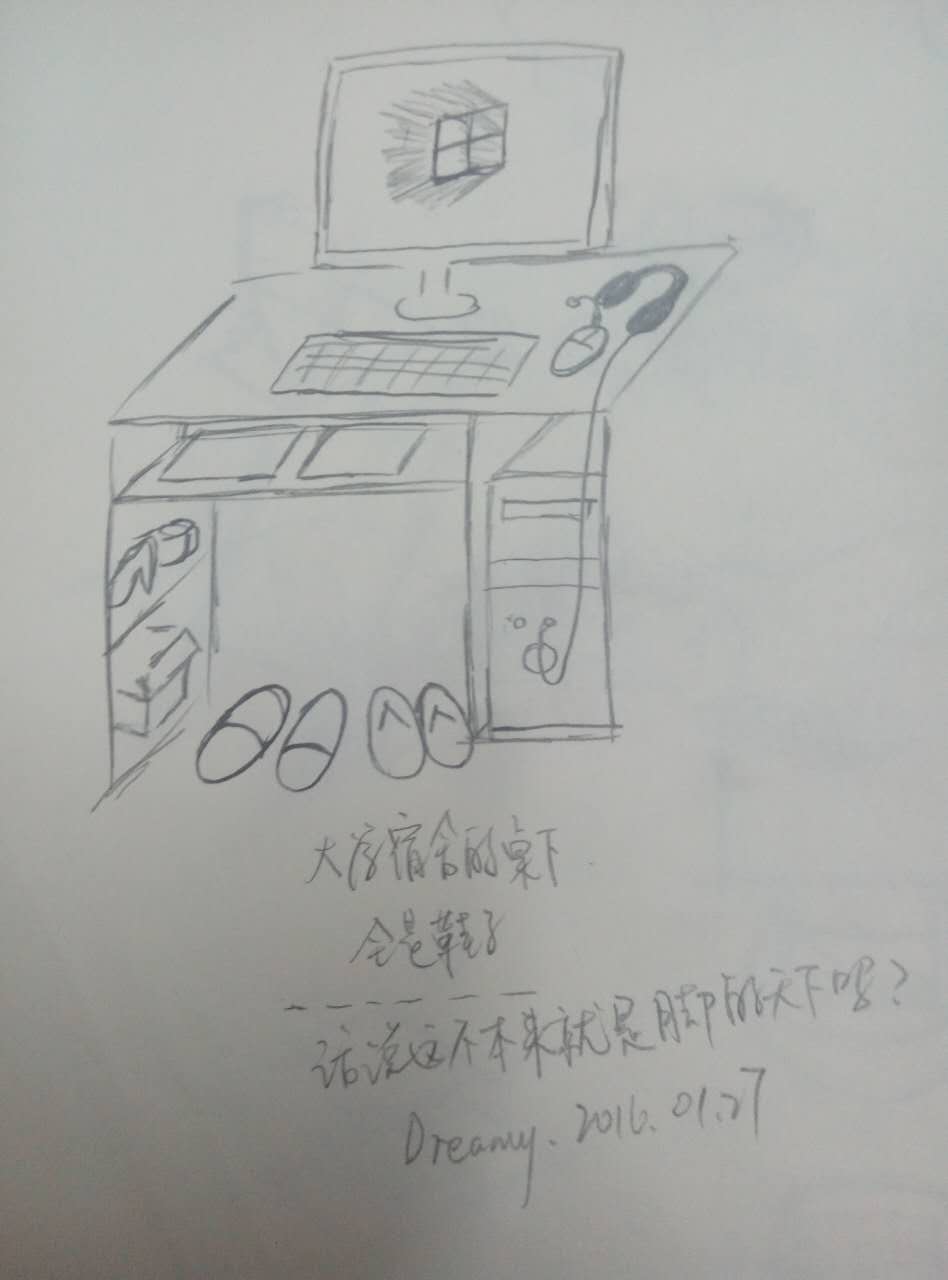 大学宿舍的桌下
全是鞋子
------
话说这不本来就是脚的天下吗？
Dreamy. 2016.01.27